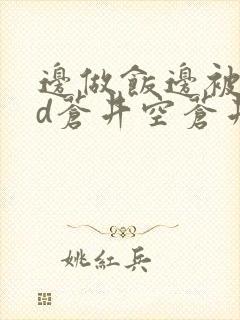 邊做飯邊被
d蒼井空蒼井
姚紅兵